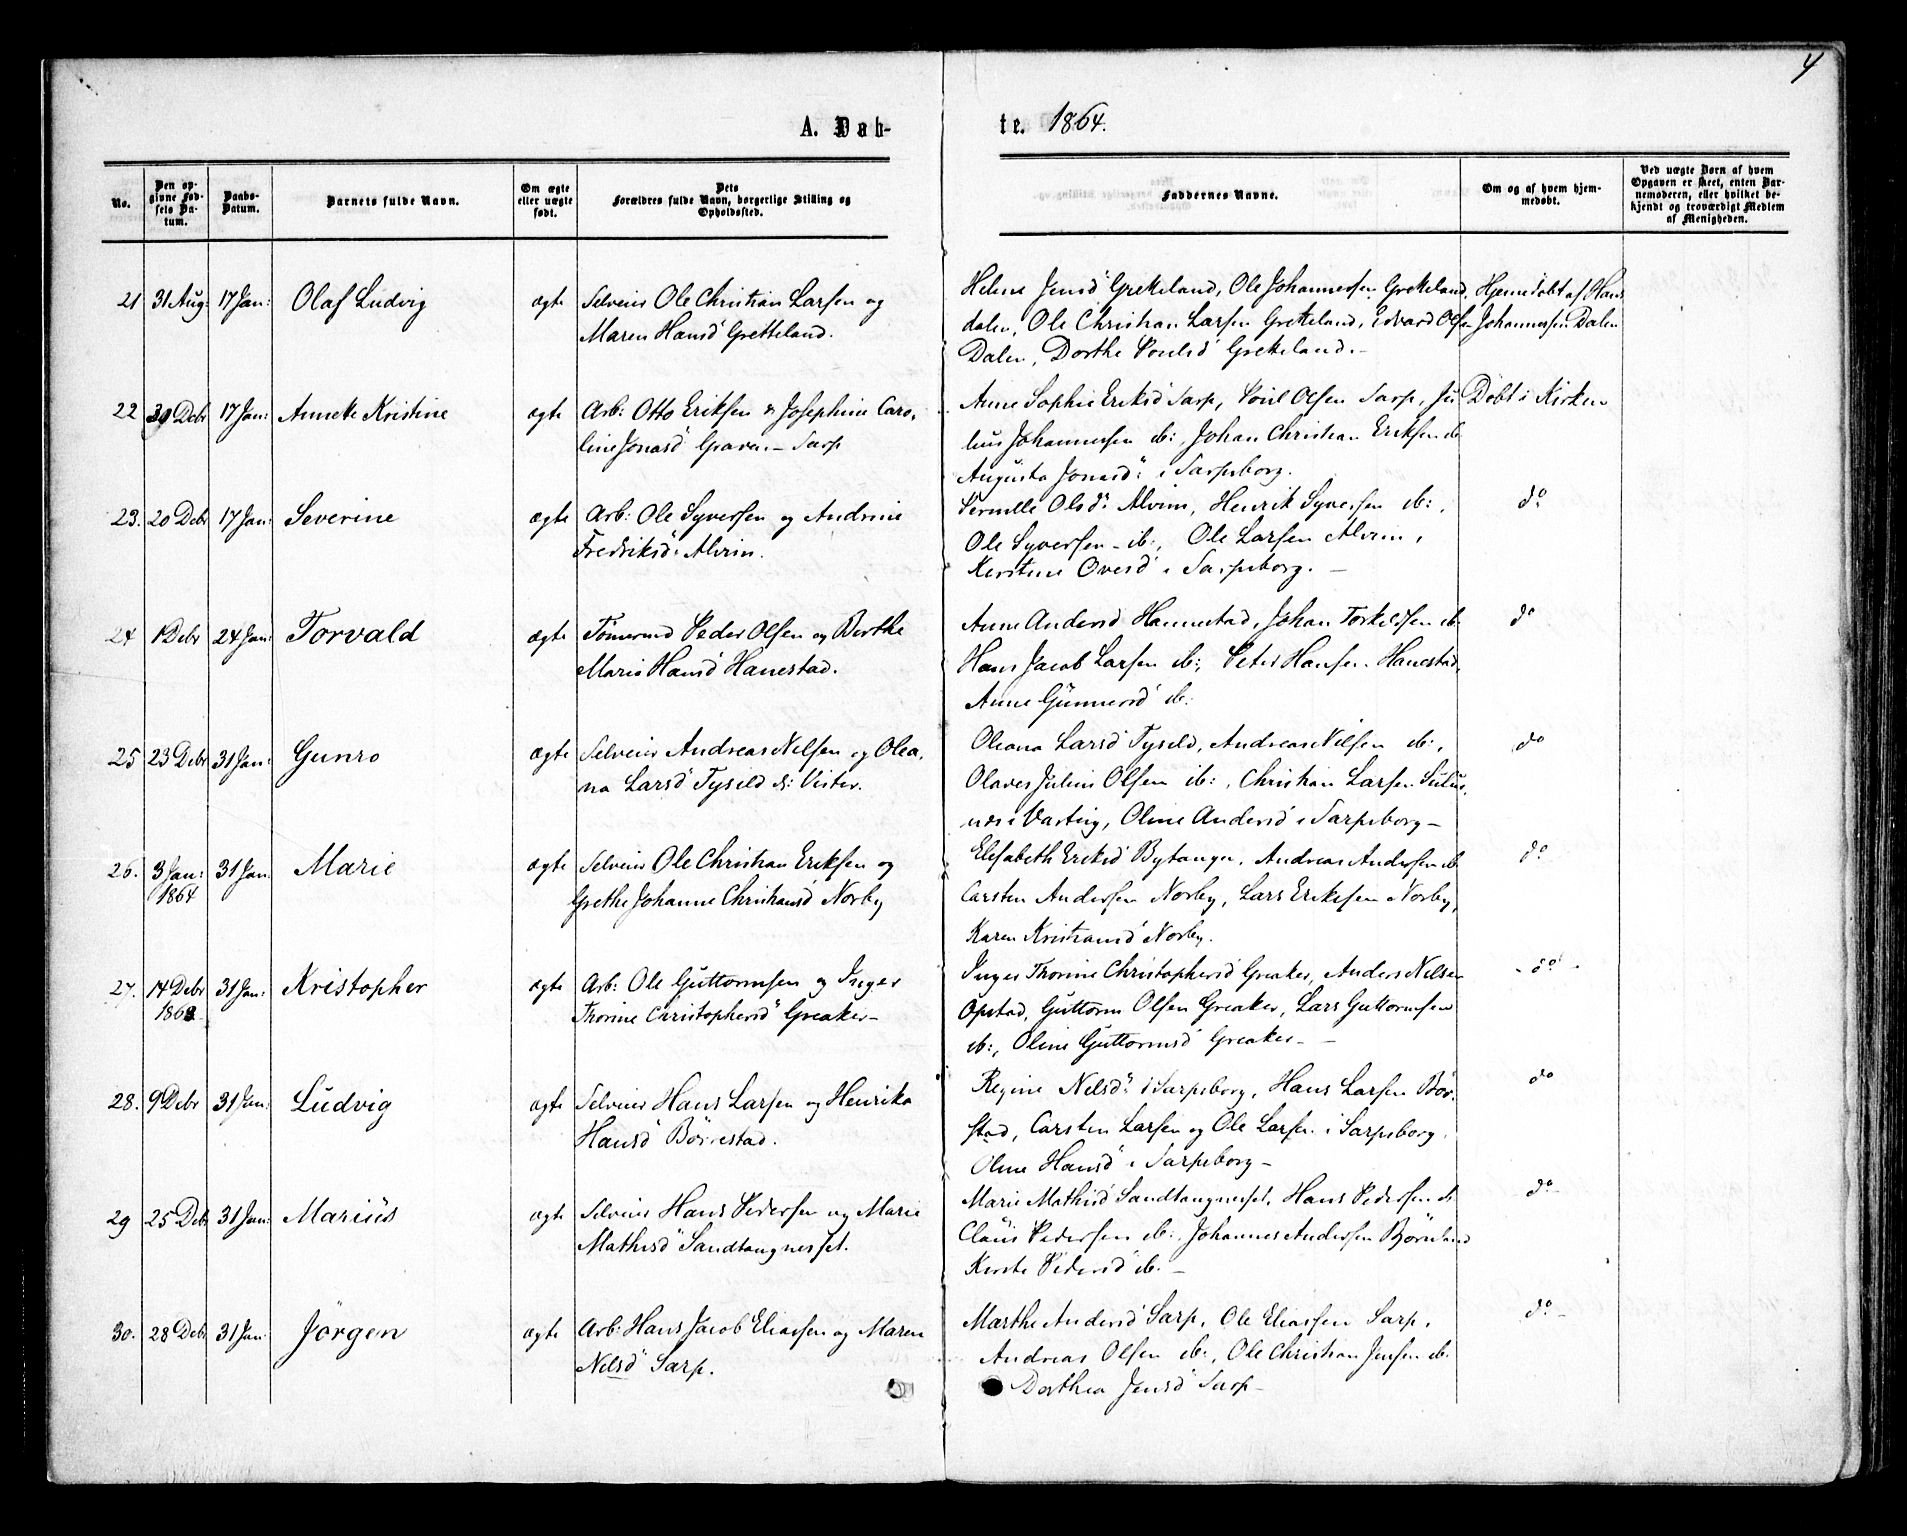 4
A. Dåb-
te. 1864.
No.
Den opgivne Fødsels Datum.
Daabs-Datum.
Barnets fulde Navn.
Om ægte eller uægte født.
Dets Forældres fulde Navn, borgerlige Stilling og Opholdssted.
Faddernes Navne.
Om og af hvem hjemmedøbt.
Ved uægte Børn af hvem Opgaven er skeet, enten Barnemoderen, eller hvilket bekjendt og troværdigt Medlem af Menigheden.
21 31 Aug: 17 Jan: Olaf Ludvig ægte Selveier Ole Christian Larsen og
Maren Hansd Gretteland.
Helene Jensd Grekeland, Ole Johannesen Grekeland, Hjemedøbt af Hans
dalen, Ole Christian Larsen Grekeland, Edvard Olsen Johannesen Dalen
Dalen, Dorthe Poulsd Grekeland.-
22 29 Debr 17 Jan: Annette Kristine ægte Arb: Otto Eriksen & Josephine Caro-
line Jonasd Graven - Sarp
Anne Sophie Eriksd Sarp, Poul Olsen Sarp, Ju Døbt i Kirken
lius Johannesen ib:, Johan Christian Eriksen ib
Augusta Jonasd: i Sarpsborg.
23. 20 Debr 17 Jan: Severine ægte Arb: Ole Syversen og Andrine
Fredriksd: Alvim.
Pernille Olsd: Alvim, Henrik Syversen ib:, do
Ole Syversen - ib:, Ole Larsen Alvim,
Kirstine Ovesd i Sarpsborg. -
24 1 Debr 24 Jan: Torvald ægte Tømermd Peder Olsen og Berthe
Marie Hansd Hanestad.
Anne Andersd Hannestad, Johan Torkildsen ib do
Hans Jacob Larsen ib:, Peter Hansen Hanestad,
Anne Gunnersd ib:
25 23 Debr 31 Jan: Gunro ægte Selveier Andreas Nilsen og Olea-
na Larsd Tyseld Vister.
Oleana Larsd Tyseld, Andreas Nilsen ib:, do
Olaves Julius Olsen ib:, Christian Larsen
i Varteig, Oline Andersd i Sarpsborg -
26. 3 Jan: 31 Jan: Marie ægte Selveier Ole Christian Eriksen og
1864 Grethe Johanne Christiansd Norby
Elisabeth Eriksd Bytangen, Andreas Andersen ib do
Carsten Andersen Norby, Lars Eriksen Norby,
Karen Kristiansd Norby.
27. 14 Debr 31 Jan: Kristopher ægte Arb: Ole Guttormsen og Inger
1863 Thorine Christophersd Greaker -
Inger Thorine Christophersd Greaker, Anders Nilsen - do -
Opstad, Guttorm Olsen Greaker, Lars Guttormsen
ib:, Oline Guttormsd Greaker - -
28. 9 Debr 31 Jan: Ludvig ægte Selveier Hans Larsen og Henrika
Hansd Börrestad.
Regine Nelsd: i Sarpsborg, Hans Larsen Bör- do
stad, Carsten Larsen og Ole Larsen i Sarpsborg,
Oline Hansd i Sarpsborg -
29 25 Debr 31 Jan: Marius ægte Selveier Hans Pedersen og Marie
Mathisd Sandtangnesset.
Marie Mathisd Sandtangnesset, Hans Pedersen ib do -
Claus Pedersen ib:, Johannes Andersen Bjørnland
Kirste Pedersd ib. -
30. 28 Debr 31 Jan: Jörgen ægte Arb: Hans Jacob Eliassen og Maren
Nelsd Sarp.
Marthe Andersd Sarp, Ole Eliassen Sarp, do -
Andreas Olsen ib:, Ole Christian Jensen ib:
Dorthea Jensd Sarp -